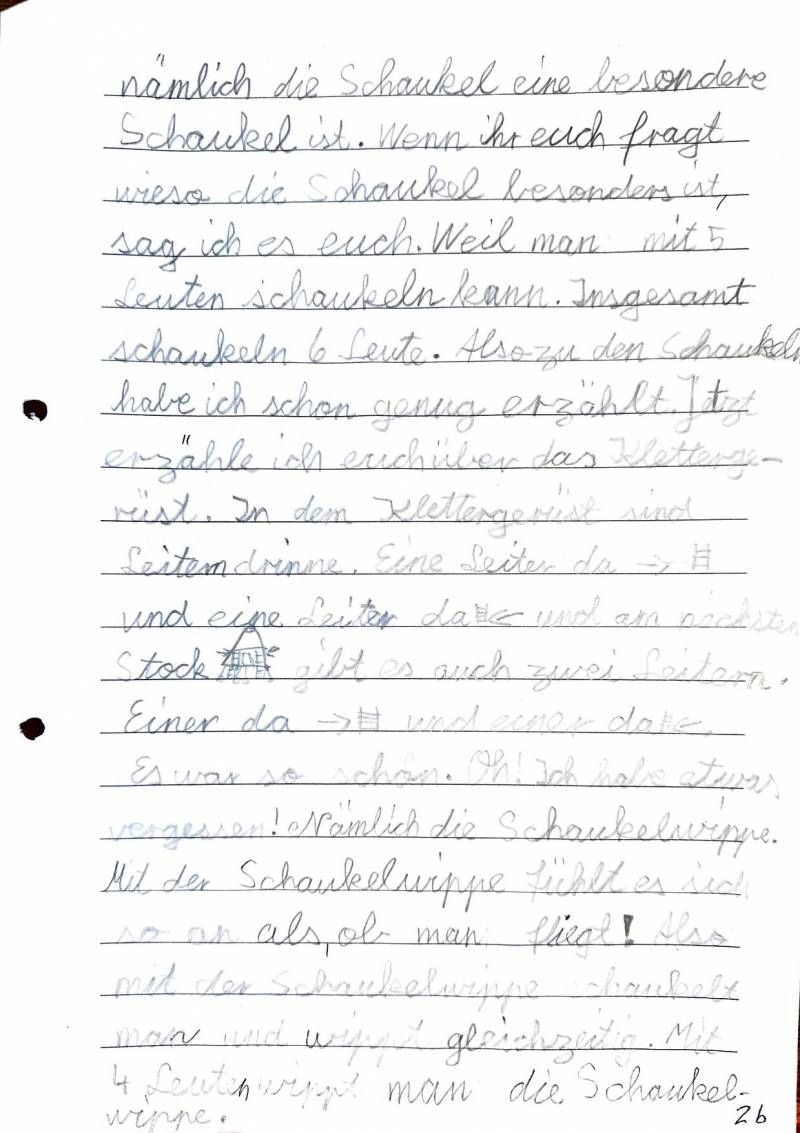 nämlich die Schaukel eine besondere
Schaukel ist. Wenn ihr euch fragt
wieso die Schaukel besonders ist,
sag ich es euch. Weil man mit 5
Leuten schaukeln kann. Insgesamt
schaukeln 6 Leute. Also zu den Schaukeln
habe ich schon genug erzählt. Jetzt
erzähle ich euch über das Kletterge-
rüst. In dem Klettergerüst sind
Leitern drinne. Eine Leiter da →
und eine Leiter da ← und am nächsten
Stock gibt es auch zwei Leitern.
Einer da → und einer da ←.
Es war so schön. Oh! Ich habe etwas
vergessen! Nämlich die Schaukelwippe.
Mit der Schaukelwippe fühlt es sich
so an als, ob man fliegt! Also
mit der Schaukelwippe schaukelt
man und wippt gleichzeitig. Mit
4 Leuten wippt man die Schaukel-
wippe.
26